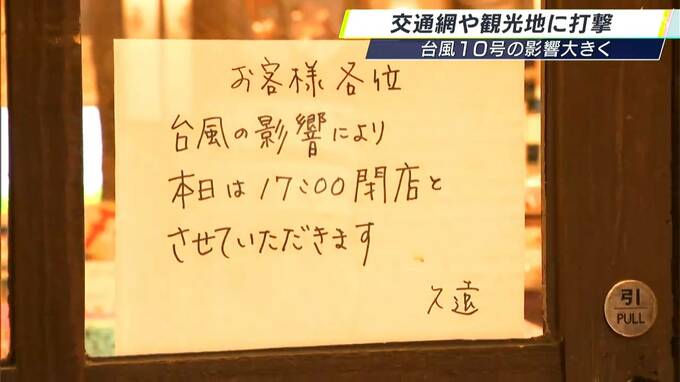 交通網や観光地に打撃
台風10号の影響大きく
お客様各位
台風の影響により
本日は17:00閉店と
させていただきます
久遠
引
PULL